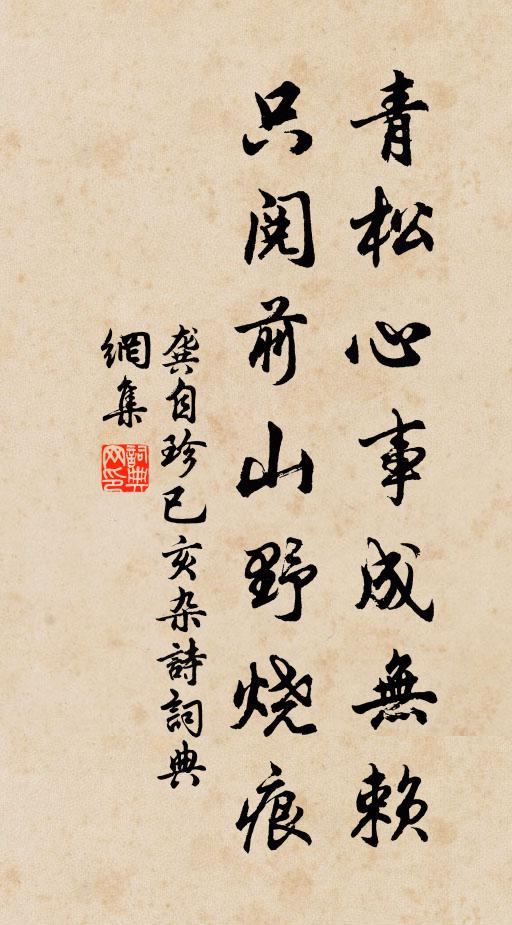 青松心事成無賴
只閱前山野烧痕
龔自珍己亥杂詩詞典
網集
詞典网印